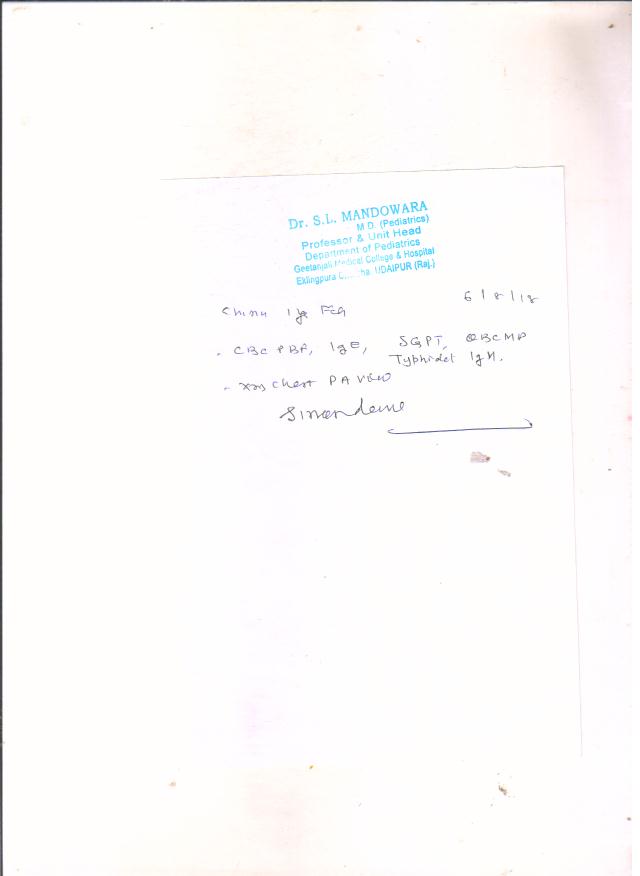 Dr. S.L. MANDOWARA
M D. (Pediatrics)
Professor & Unit Head
Department of Pediatrics
Geetanjali Medical College & Hospital
Eklingpura UDAIPUR (Raj.)
6/8/18
Chinu
. CBC PBF, IgE, SGPT, QBC MP
Typhidot IgM.
- Xray Chest PA View